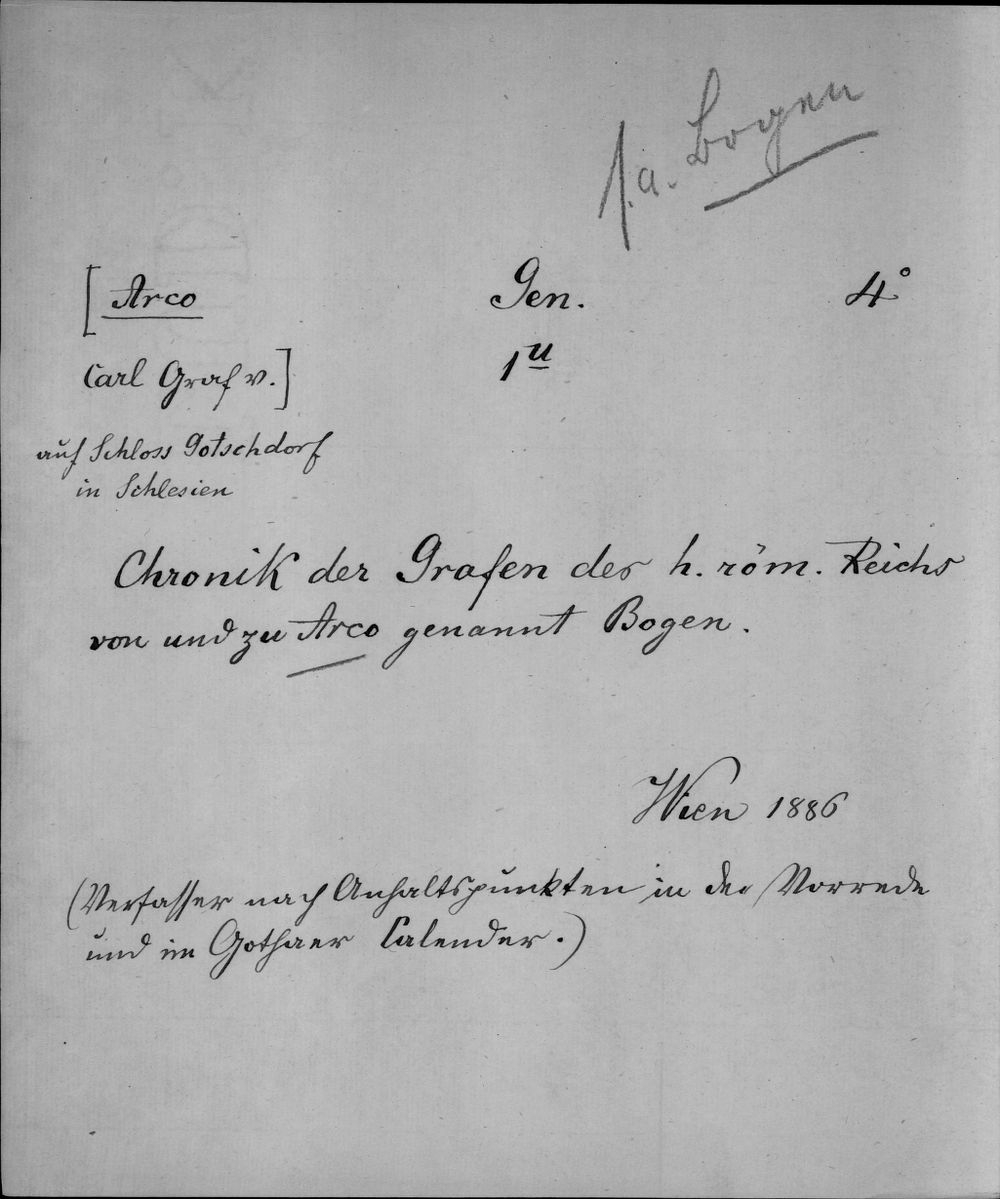 s. a. Bogen
[Arco Gen. 4°
1u
Carl Graf v.]
auf Schloss Gotschdorf
in Schlesien
Chronik der Grafen des h. röm. Reichs
von und zu Arco genannt Bogen.
Wien 1886
(Verfasser nach Anhaltspunkten in der Vorrede
und im Gothaer Calender.)